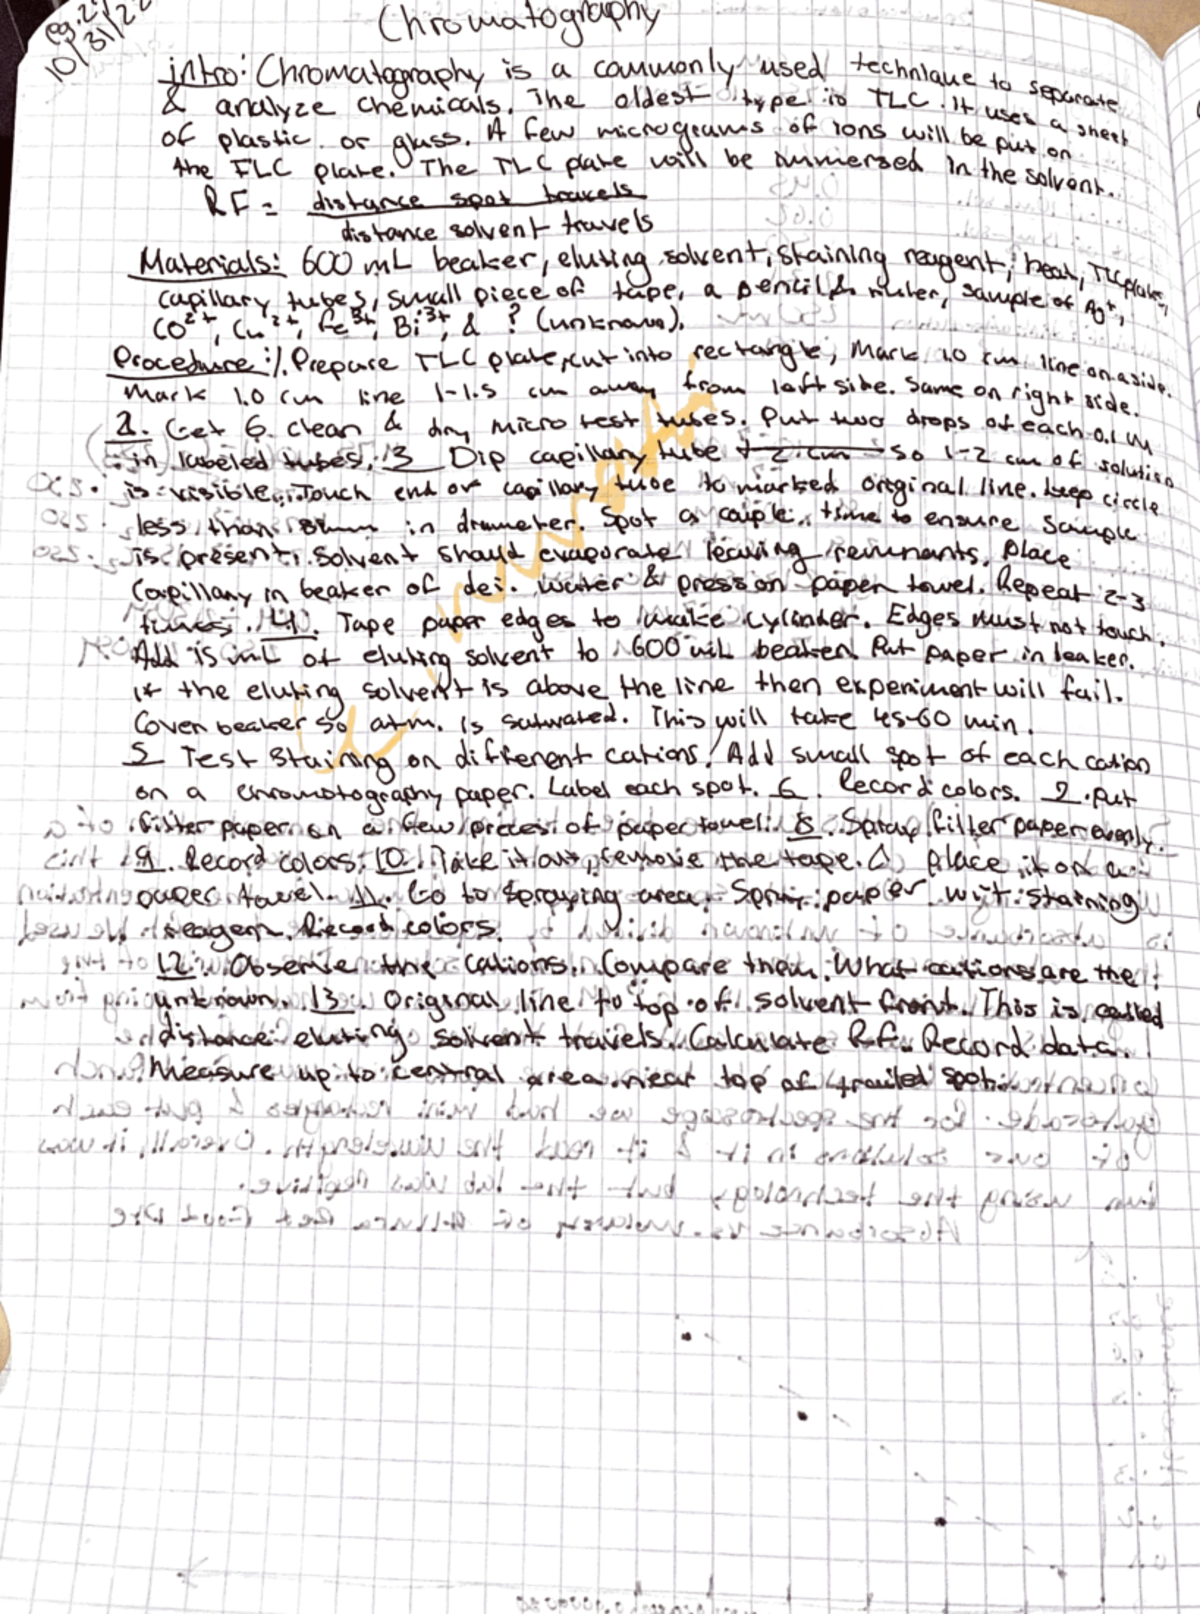 pg. 2
10/31/22
Chromatography
intro: Chromatography is a commonly used technique to separate
& analyze chemicals. The oldest type is TLC. It uses a sheet
of plastic or glass. A few micrograms of ions will be put on
the TLC plate. The TLC plate will be immersed in the solvent.
RF = distance spot travels
distance solvent travels
Materials: 600 mL beaker, eluting solvent, staining reagent, heat, TLC plate,
capillary tubes, small piece of tape, a pencil & ruler, sample of Ag+,
CO2+, Cu2+, Fe3+, Bi3+, & ? (unknown).
Procedure: 1. Prepare TLC plate, cut into rectangle, Mark 1.0 cm line on a side.
Mark 1.0 cm line 1-1.5 cm away from left side. Same on right side.
2. Get 6 clean & dry micro test tubes. Put two drops of each 0.1 M
in labeled tubes. 3 Dip capillary tube 1-2 cm so 1-2 cm of solution
is visible. Touch end of capillary tube to marked original line. keep circle
less than 8mm in diameter. Spot a couple time to ensure sample
is present. Solvent should evaporate leaving remnants. Place
Capillary in beaker of dei. water & press on paper towel. Repeat 2-3
times. 4. Tape paper edges to make cylinder. Edges must not touch.
Add 15 mL of eluting solvent to 600 mL beaker. Put paper in beaker.
if the eluting solvent is above the line then experiment will fail.
Cover beaker so atm. is saturated. This will take 45-60 min.
5 Test Staining on different cations. Add small spot of each cation
on a chromotography paper. Label each spot. 6. Record colors. 7. Put
filter paper on a few pieces of paper towel. 8. Spray filter paper evenly.
9. Record colors. 10. Take it out, remove the tape. Place it on a
paper towel. 11. Go to Spraying area. Spray paper wit staining
reagent. Record colors.
12. Observe the cations. Compare them. What cations are the
unknown. 13. Original line to top of solvent front. This is called
distance eluting solvent travels. Calculate Rf. Record data.
Measure up to central area near top of trailed spot.